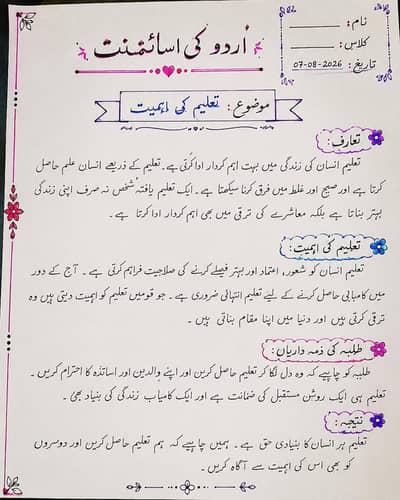 نام:
کلاس:
تاریخ: 07-08-2026
اُردو کی اسائمنٹ
موضوع: تعلیم کی اہمیت
تعارف:
تعلیم انسان کی زندگی میں بہت اہم کردار ادا کرتی ہے۔ تعلیم کے ذریعے انسان علم حاصل
کرتا ہے اور صحیح اور غلط میں فرق کرنا سیکھتا ہے۔ ایک تعلیم یافتہ شخص نہ صرف اپنی زندگی
بہتر بناتا ہے بلکہ معاشرے کی ترقی میں بھی اہم کردار ادا کرتا ہے۔
تعلیم کی اہمیت:
تعلیم انسان کو شعور، اعتماد اور بہتر فیصلے کرنے کی صلاحیت فراہم کرتی ہے۔ آج کے دور
میں کامیابی حاصل کرنے کے لیے تعلیم انتہائی ضروری ہے۔ جو قومیں تعلیم کو اہمیت دیتی ہیں وہ
ترقی کرتی ہیں اور دنیا میں اپنا مقام بناتی ہیں۔
طلبہ کی ذمہ داریاں:
طلبہ کو چاہیے کہ وہ دل لگا کر تعلیم حاصل کریں اور اپنے والدین اور اساتذہ کا احترام کریں۔
تعلیم ہی ایک روشن مستقبل کی ضمانت ہے اور ایک کامیاب زندگی کی بنیاد بھی۔
نتیجہ:
تعلیم ہر انسان کا بنیادی حق ہے۔ ہمیں چاہیے کہ ہم تعلیم حاصل کریں اور دوسروں
کو بھی اس کی اہمیت سے آگاہ کریں۔